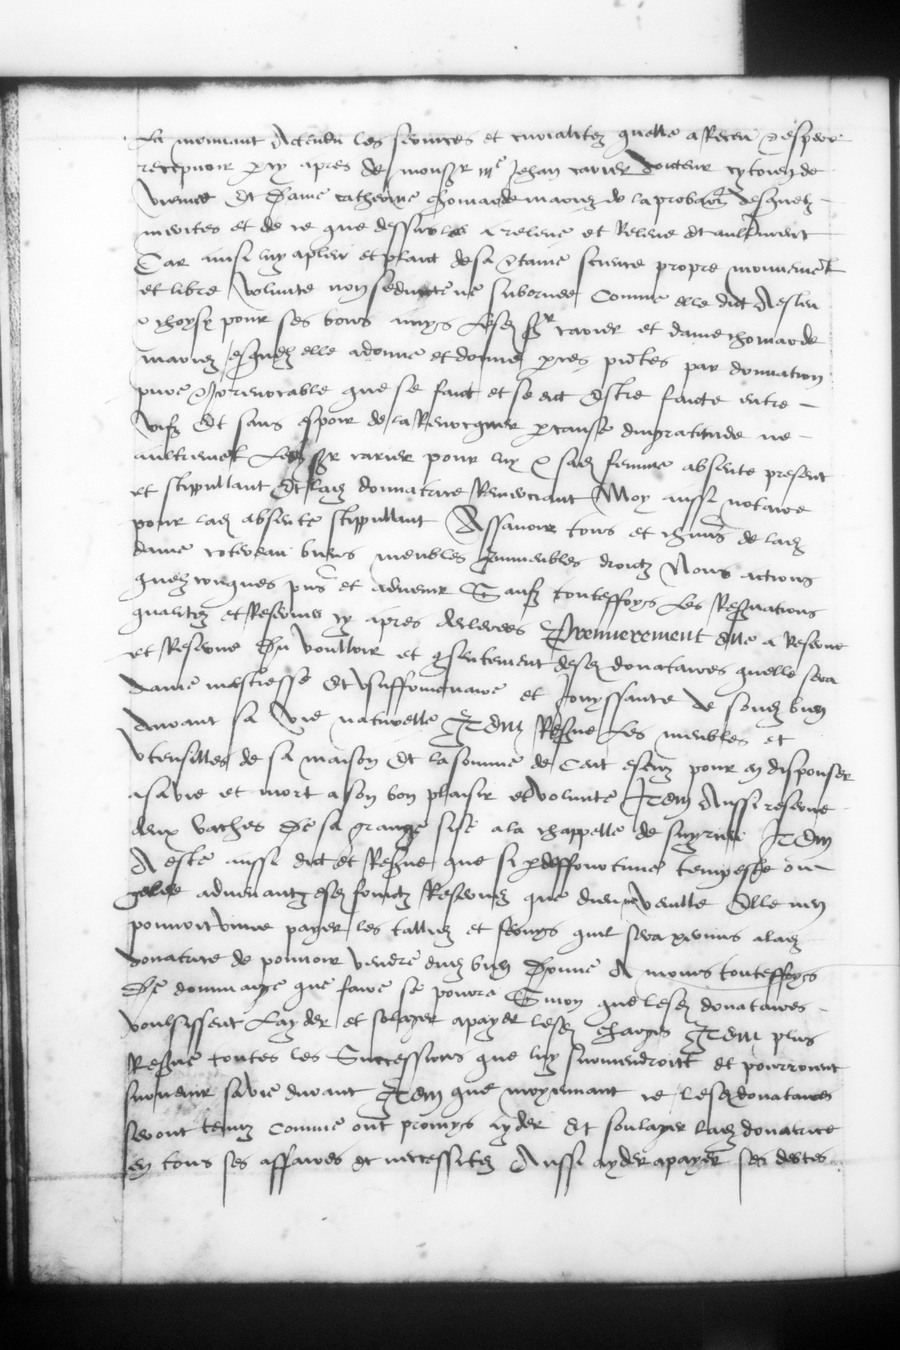 La mouvant Actendu les services et curialitez quelle a Receu & espere
recepvoir cy apres de monsr me Jehan carier docteur cytoien de
vienne Et Dame catherine chomarde mariez de la probaon desquelz
merites et de ce que dessus les a releve et Releve et aultrement
Car ainsi luy a pleu et plaict de sa certaine science propre mouvement
et libre volunte non seduicte ne subornee Comme elle dict A esleu
& choysy pour ses bons amys Lesd sr carier et dame chomarde
mariez esquelz elle a donne et donne par ces pntes par donnation
pure & Irrevocable que se faict et se dict Estre faicte entre
vifz Et sans espoir de la Revocquer par cause dingratitude ne
aultrement Led sr carier pour luy & sad femme absente present
et stipullant Et lad donnatrice Remerciant Moy aussi notaire
pour lad absente stipullant Assavoir tous et chuns de lad
dame biens meubles Immeubles droictz Noms actions
quelzconques pns et advenir Saufz touteffoys Les Reservations
qualitez et Reserves cy apres declerees Premierement elle a Reserve
et Reserve Du voulloir et consentement desd donataires quelle sera
dame maistresse Et Usuffructuaire et Jouyssante de sesd biens
durant sa vie naturelle Item Reserve Les meubles et
utensilles de sa maison Et la somme de Cent escuz pour en disposer
a sa vie et mort a son bon plaisir et volunte Item Aussi reserve
deux vaches De sa grange sise a la chappelle de Item
A este aussi dict et Reserve que si par deffortune tempeste ou
gelee advenantz esd fruictz Reservez que dieu ne veulle Elle nen
pouvoit vivre payer les tailles et servys quil sera permis a lad
donatrice de pouvoir vendre desd biens Donne A moins touteffoys
De dommaige que faire se pourra Sinon que lesd donataires
voulsissent Layder et solager a payer lesd charges Item plus
Reserve toutes les Successions que luy surviendroict et pourroient
survenir sa vie durant Item que moyennant ce lesd donataires
seront tenuz comme ont promys ayder Et soulager lad donatrice
en tous ses affaires et necessitez Aussi ayder a payer ses debtes